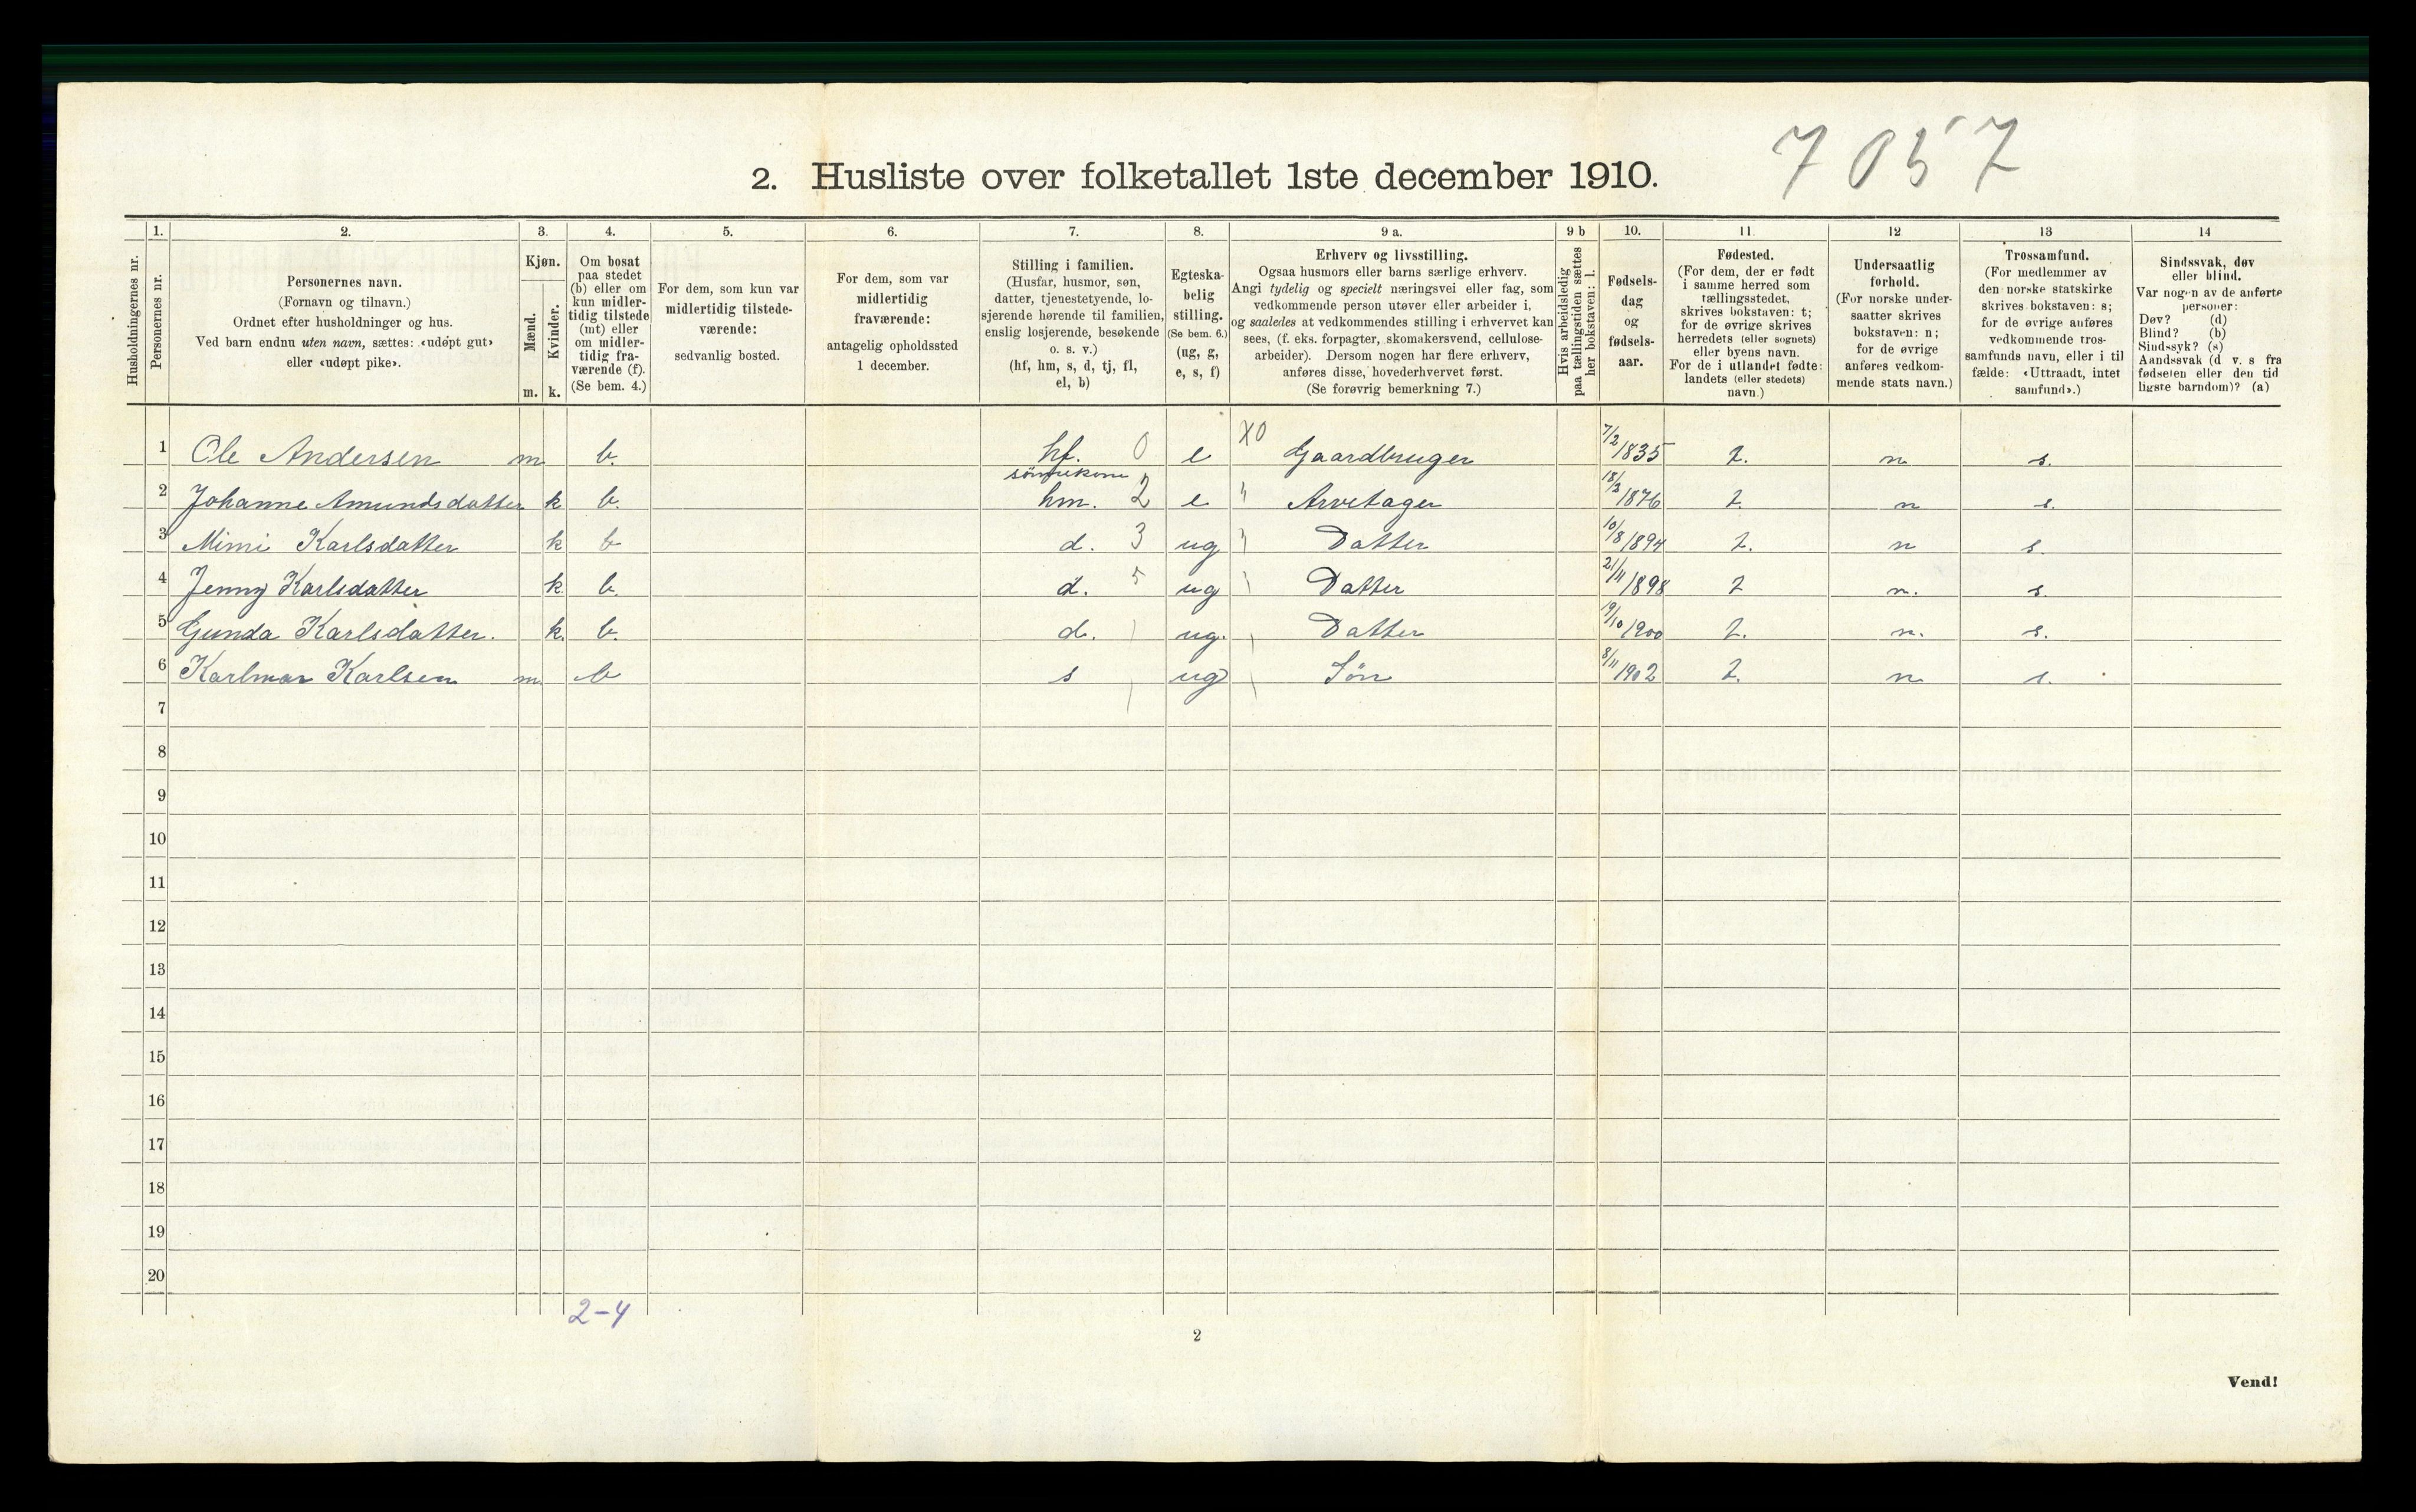 7057
2. Husliste over folketallet 1ste december 1910.
Husholdningernes nr.
1. Personernes nr.
2. Personernes navn. (Fornavn og tilnavn.) Ordnet efter husholdninger og hus. Ved barn endnu uten navn, sættes: «udøpt gut» eller «udøpt pike».
3. Kjøn. Mænd. m. Kvinder. k.
4. Om bosat paa stedet (b) eller om kun midlertidig tilstede (mt) eller om midlertidig fraværende (f). (Se bem. 4.)
5. For dem, som kun var midlertidig tilstedeværende: sedvanlig bosted.
6. For dem, som var midlertidig fraværende: antagelig opholdssted 1 december.
7. Stilling i familien. (Husfar, husmor, søn, datter, tjenestetyende, losjerende hørende til familien, enslig losjerende, besøkende o. s. v.) (hf, hm, s, d, tj, fl, el, b)
8. Egteskabelig stilling. (Se bem. 6.) (ug, g, e, s, f)
9 a. Erhverv og livsstilling. Ogsaa husmors eller barns særlige erhverv. Angi tydelig og specielt næringsvei eller fag, som vedkommende person utøver eller arbeider i, og saaledes at vedkommendes stilling i erhvervet kan sees, (f. eks. forpagter, skomakersvend, cellulosearbeider). Dersom nogen har flere erhverv, anføres disse, hovederhvervet først. (Se forøvrig bemerkning 7.)
9 b Hvis arbeidsledig paa tællingstiden sættes her bokstaven: l.
10. Fødselsdag og fødselsaar.
11. Fødested. (For dem, der er født i samme herred som tællingsstedet, skrives bokstaven: t; for de øvrige skrives herredets (eller sognets) eller byens navn. For de i utlandet fødte: landets (eller stedets) navn.)
12 Undersaatlig forhold. (For norske undersaatter skrives bokstaven: n; for de øvrige anføres vedkommende stats navn.)
13 Trossamfund. (For medlemmer av den norske statskirke skrives bokstaven: s; for de øvrige anføres vedkommende trossamfunds navn, eller i tilfælde: «Uttraadt, intet samfund».)
14 Sindssvak, døv eller blind. Var nogen av de anførte personer: Døv? (d) Blind? (b) Sindssyk? (s) Aandssvak (d v. s fra fødselen eller den tidligste barndom)? (a)
1 Ole Andersen m b. hf. 0 e X0 Gaardbruger 7/2 1835 t. n s.
sönnekone
2 Johanne Amundsdatter k b. hm. 2 e " Arvetager 18/3 1876 t. n s.
3 Mimi Karlsdatter k b d. 3 ug " Datter 10/8 1894 t. n s.
4 Jenny Karlsdatter k b. d. 5 ug Datter 21/11 1898 t n. s.
5 Gunda Karlsdatter. k. b. d. ug. Datter 9/10 1900 t. n. s.
6 Karlmar Karlsen m b s ug Søn 8/11 1902 t. n s.
7
8
9
10
11
12
13
14
15
16
17
18
19
20
2-4
2
Vend!